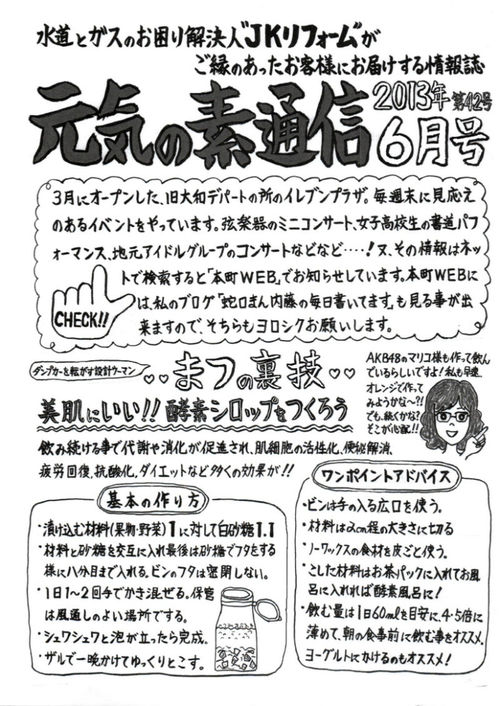 水道とガスのお困り解決人"JKリフォーム"が
ご縁のあったお客様にお届けする情報誌
元気の素通信
2013年 第42号
6月号
3月にオープンした、旧大和デパートの所のイレブンプラザ。毎週末に見応え
のあるイベントをやっています。弦楽器のミニコンサート、女子高校生の書道パフ
ォーマンス、地元アイドルグループのコンサートなどなど‥‥!又、その情報はネッ
トで検索すると「本町WEB」でお知らせしています。本町WEBに
は、私のブログ「蛇口まん内藤の毎日書いてます。も見る事が出
来ますので、そちらもヨロシクお願いします。
CHECK!!
ダンプカーを転がす設計ウーマン
まつの裏技
美肌にいい!!酵素シロップをつくろう
AKB48のマリコ様も作って飲ん
でいるらしいですよ!私も早速
オレンジで作って
みようかな〜?!
でも、続くかな?
そこが心配!!
飲み続ける事で代謝や消化が促進され、肌細胞の活性化、便秘解消、
疲労回復、抗酸化、ダイエットなど多くの効果が!!
基本の作り方
・漬け込む材料(果物・野菜)1に対して白砂糖1.1
・材料と砂糖を交互に入れ最後は砂糖でフタをする
様に八分目まで入れる。ビンのフタは密閉しない。
・1日1〜2回手でかき混ぜる。保管
は風通しのよい場所でする。
・シュワシュワと泡が立ったら完成。
・ザルで一晩かけてゆっくりとこす。
ワンポイントアドバイス
・ビンは手の入る広口を使う。
・材料は2cm程の大きさに切る
・ノーワックスの食材を皮ごと使う。
・こした材料はお茶パックに入れてお風
呂に入れれば酵素風呂に!
・飲む量は1日60mlを目安に、4・5倍に
薄めて、朝の食事前に飲む事をオススメ、
ヨーグルトにかけるのもオススメ!